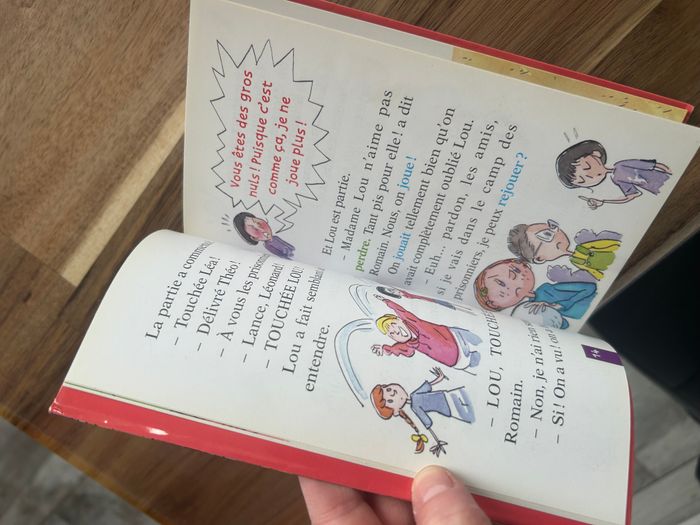 La partie a commencé
– Touchée Léa!
– Délivré Théo!
– À vous les prisonn
– Lance, Léonard!
– TOUCHÉE LOU
Lou a fait semblant
entendre.
– LOU, TOUCHÉE
Romain.
– Non, je n'ai rien s
– Si! On a vu! on a
14
Vous êtes des gros
nuls! Puisque c'est
comme ça, je ne
joue plus!
Et Lou est partie.
– Madame Lou n'aime pas
perdre. Tant pis pour elle! a dit
Romain. Nous, on joue!
On jouait tellement bien qu'on
avait complètement oublié Lou.
– Euh... pardon, les amis,
si je vais dans le camp des
prisonniers, je peux rejouer?